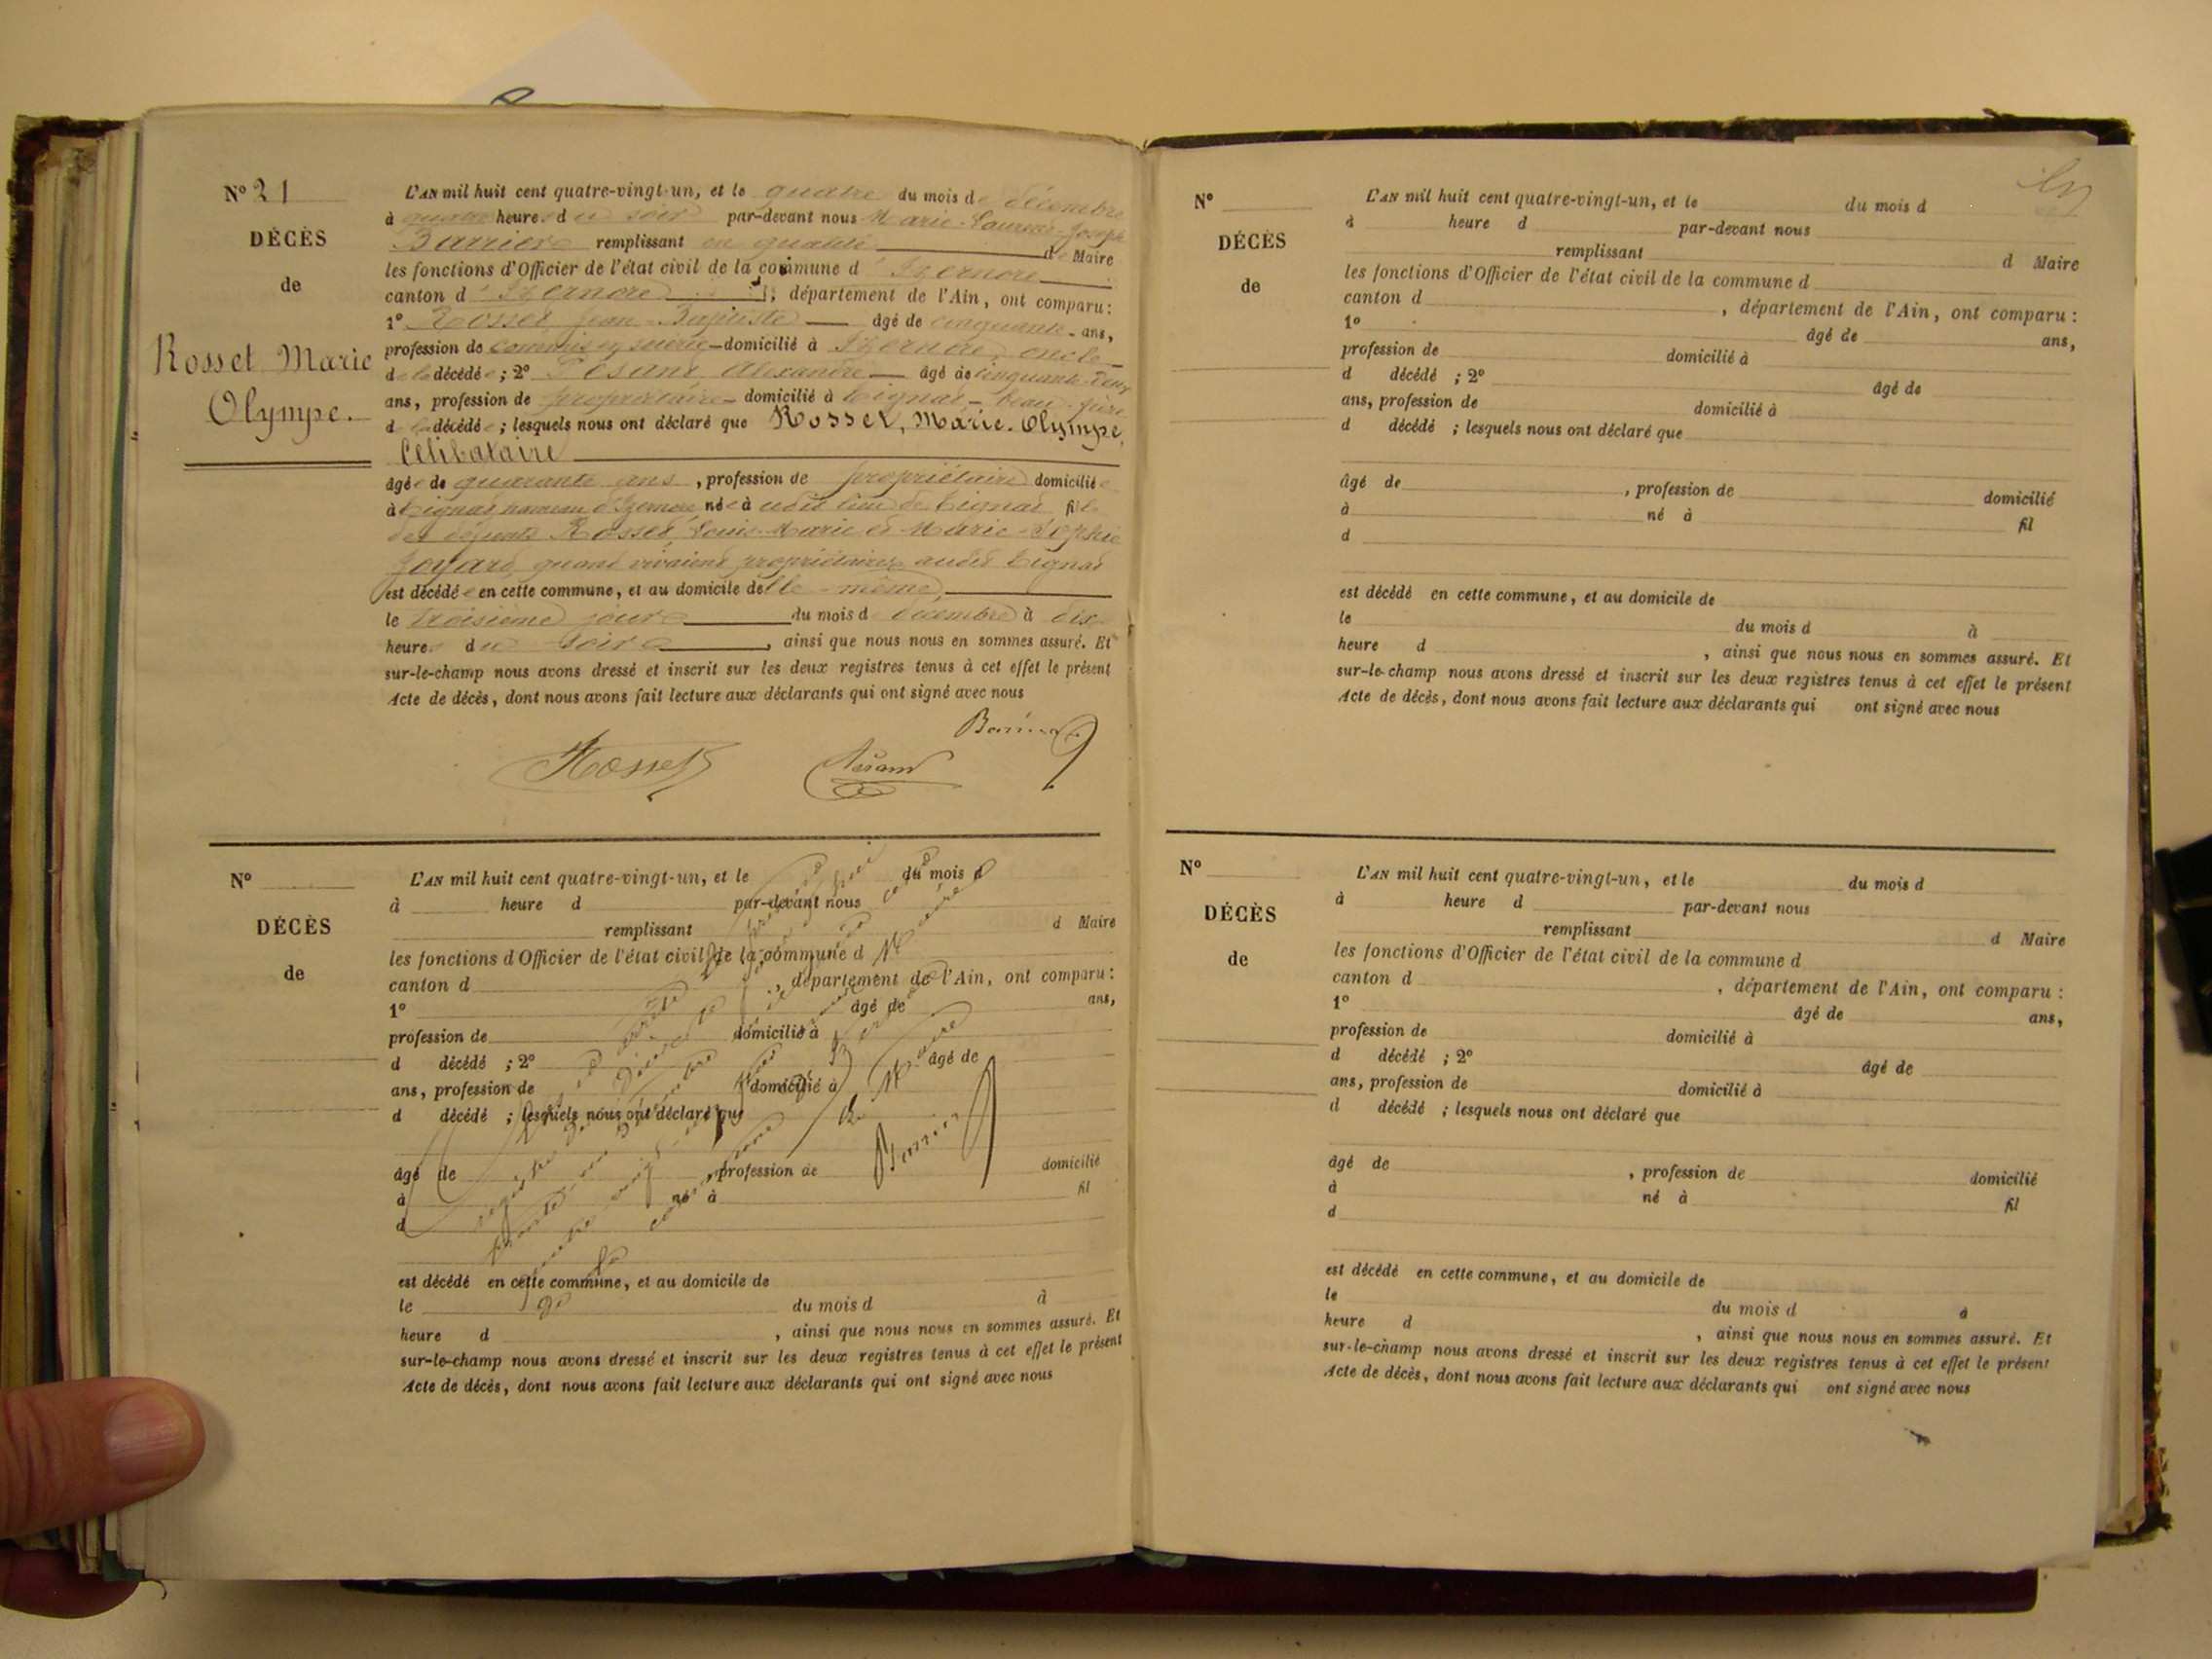 Nº 21
DÉCÈS
de
Rosset Marie
Olympe.
L'AN mil huit cent quatre-vingt-un, et le quatre du mois de décembre
à quatre heures du soir par-devant nous Marie-Laurent-Joseph
Barrier remplissant en qualité de Maire
les fonctions d'Officier de l'état civil de la commune d'Izernore
canton d'Izernore, département de l'Ain, ont comparu:
1º Rosset Jean-Baptiste âgé de cinquante ans,
profession de domicilié à Izernore, oncle
de la décédée; 2º Pesant Alexandre âgé de cinquante-deux
ans, profession de propriétaire domicilié à Tignat, beau-frère
de la décédée; lesquels nous ont déclaré que Rosset, Marie-Olympe,
Célibataire
âgée de quarante ans, profession de propriétaire domiciliée
à Tignat hameau d'Izernore née à udit lieu de Tignat fille
des défunts Rosset, Louis-Marie et Marie-Sophie
Joyard, quand vivaient propriétaires audit Tignat
est décédée en cette commune, et au domicile d'elle-même,
le troisième jour du mois de décembre à dix
heures du soir, ainsi que nous nous en sommes assuré. Et
sur-le-champ nous avons dressé et inscrit sur les deux registres tenus à cet effet le présent
Acte de décès, dont nous avons fait lecture aux déclarants qui ont signé avec nous
Barrier
Rosset Pesant
Nº
DÉCÈS
de
L'AN mil huit cent quatre-vingt-un, et le du mois d
à heure d par-devant nous
remplissant d Maire
les fonctions d'Officier de l'état civil de la commune d
canton d , département de l'Ain, ont comparu:
1º âgé de ans,
profession de domicilié à
d décédé ; 2º âgé de
ans, profession de domicilié à
d décédé ; lesquels nous ont déclaré que
âgé de profession de domicilié
à né à fil
d
est décédé en cette commune, et au domicile de
le du mois d à
heure d , ainsi que nous nous en sommes assuré. Et
sur-le-champ nous avons dressé et inscrit sur les deux registres tenus à cet effet le présent
Acte de décès, dont nous avons fait lecture aux déclarants qui ont signé avec nous
Le Maire
Barrier
Nº
DÉCÈS
de
L'AN mil huit cent quatre-vingt-un, et le du mois d
à heure d par-devant nous
remplissant d Maire
les fonctions d'Officier de l'état civil de la commune d
canton d , département de l'Ain, ont comparu :
1º âgé de ans,
profession de domicilié à
d décédé ; 2º âgé de
ans, profession de domicilié à
d décédé ; lesquels nous ont déclaré que
âgé de , profession de domicilié
à né à fil
d
est décédé en cette commune, et au domicile de
le du mois d à
heure d , ainsi que nous nous en sommes assuré. Et
sur-le-champ nous avons dressé et inscrit sur les deux registres tenus à cet effet le présent
Acte de décès, dont nous avons fait lecture aux déclarants qui ont signé avec nous
Nº
DÉCÈS
de
L'AN mil huit cent quatre-vingt-un, et le du mois d
à heure d par-devant nous
remplissant d Maire
les fonctions d'Officier de l'état civil de la commune d
canton d , département de l'Ain, ont comparu :
1º âgé de ans,
profession de domicilié à
d décédé ; 2º âgé de
ans, profession de domicilié à
d décédé ; lesquels nous ont déclaré que
âgé de , profession de domicilié
à né à fil
d
est décédé en cette commune, et au domicile de
le du mois d à
heure d , ainsi que nous nous en sommes assuré. Et
sur-le-champ nous avons dressé et inscrit sur les deux registres tenus à cet effet le présent
Acte de décès, dont nous avons fait lecture aux déclarants qui ont signé avec nous